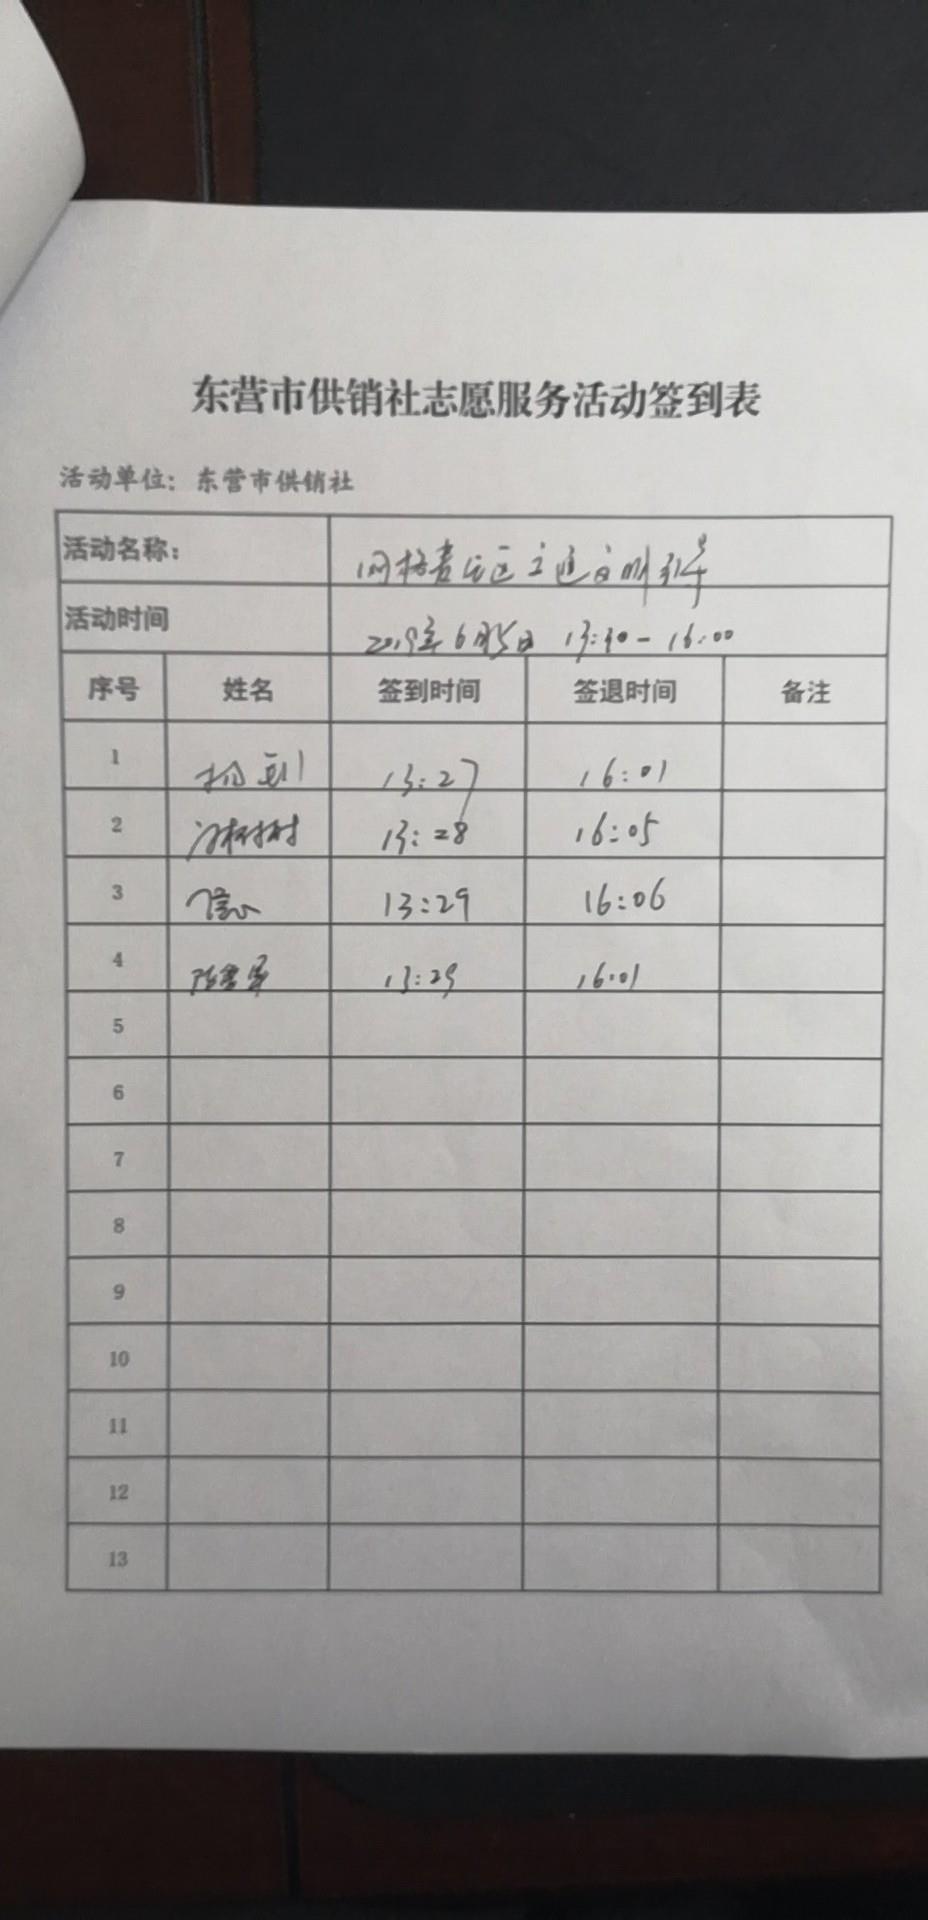 东营市供销社志愿服务活动签到表
活动单位：东营市供销社
活动名称： 网格责任区交通文明引导
活动时间 2019年6月5日 13:30-16:00
序号 姓名 签到时间 签退时间 备注
1 13:27 16:01
2 13:28 16:05
3 13:29 16:06
4 13:29 16:01
5
6
7
8
9
10
11
12
13